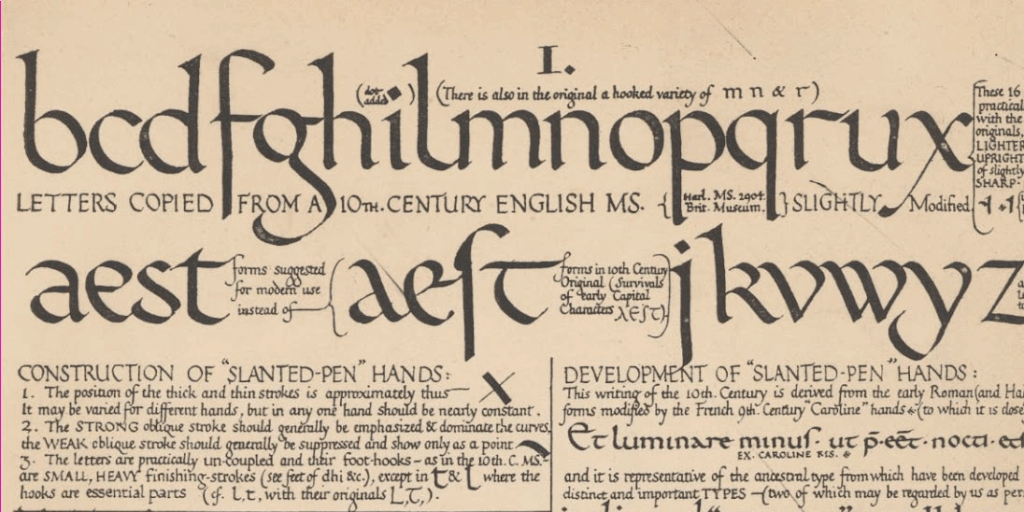 1.
bcdfghilmnopqrux
(dot added)
(There is also in the original a hooked variety of m n & r)
These 16
practical
with the
originals,
LIGHTER
UPRIGHT
of slightly
SHARP-
LETTERS COPIED FROM A 10TH. CENTURY ENGLISH MS. {Harl. MS. 2904. Brit. Museum.} SLIGHTLY Modified
aest
forms suggested
for modern use
instead of
(aeſt
forms in 10th Century
Original (Survivals
of early Capital
Characters
jkvwyz
CONSTRUCTION OF "SLANTED-PEN" HANDS:
1. The position of the thick and thin strokes is approximately thus
It may be varied for different hands, but in any one hand should be nearly constant.
2. The STRONG oblique stroke should generally be emphasized & dominate the curves,
the WEAK oblique stroke should generally be suppressed and show only as a point
3. The letters are practically un-coupled and their foot-hooks - as in the 10th. C. MS.-
are SMALL, HEAVY finishing-strokes (see feet of dhi &c.), except in t & l where the
hooks are essential parts (cf. l, t, with their originals L, T,).
DEVELOPMENT OF "SLANTED-PEN" HANDS:
This writing of the 10th. Century is derived from the early Roman (and Ha
forms modified by the French 9th. Century "Caroline" hands (to which it is close
Et luminare minuſ. ut p̄-eēt. nocti.
EX. CAROLINE
and it is representative of the ancestral type from which have been developed
distinct and important TYPES — (two of which may be regarded by us as per